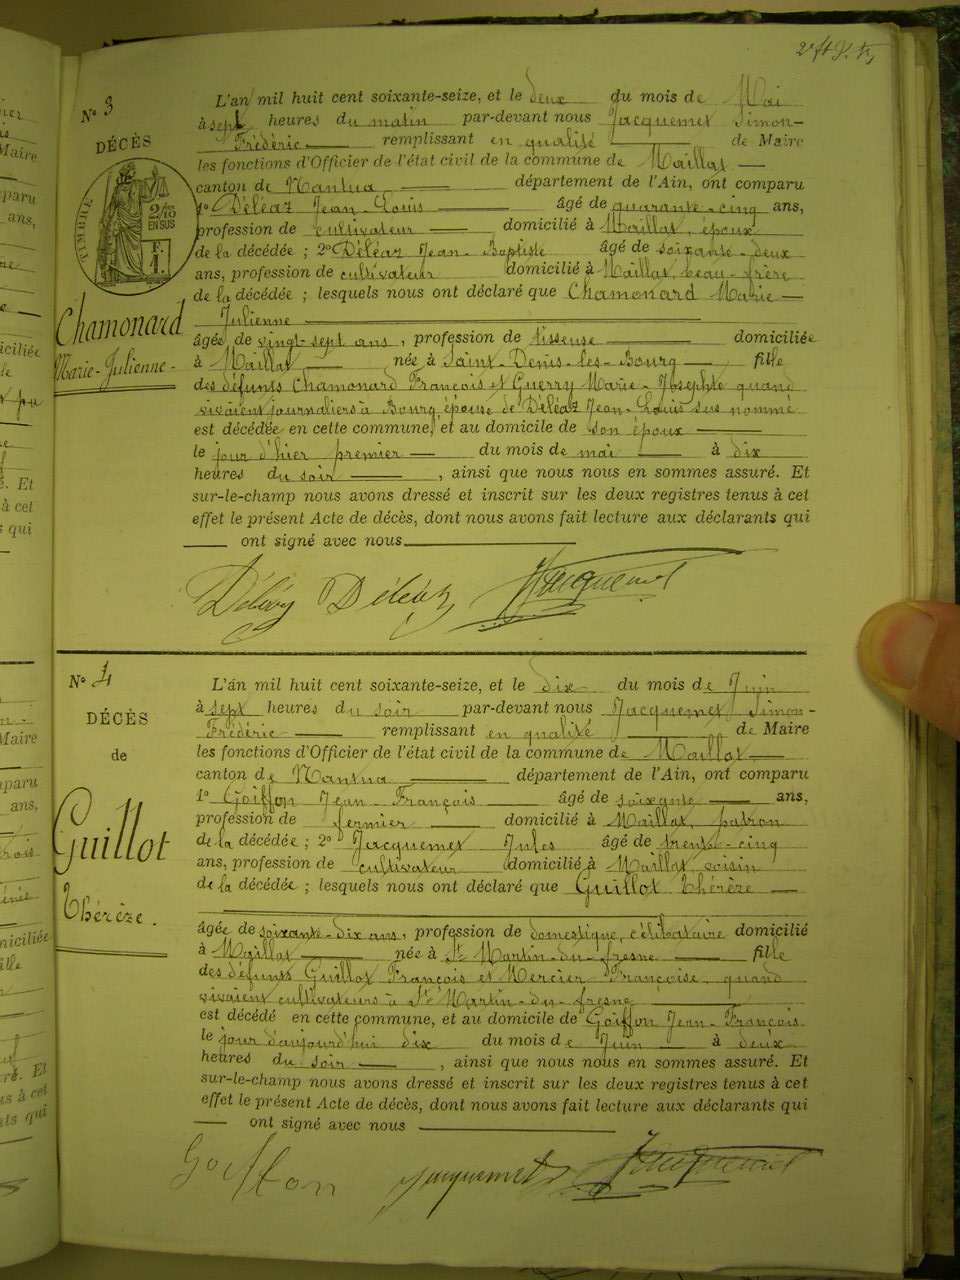 N° 3
DÉCÈS
TIMBRE
2/10
EN SUS
Chamonard
Marie-Julienne-
L'an mil huit cent soixante-seize, et le deux du mois de Mai
à sept heures du matin par-devant nous Jacquemet Simon-
Frédéric remplissant en qualité de Maire
les fonctions d'Officier de l'état civil de la commune de Maillat
canton de Nantua département de l'Ain, ont comparu
1° Déléaz Jean-Louis âgé de quarante-cinq ans,
profession de cultivateur domicilié à Maillat, époux
de la décédée ; 2° Déléaz Jean-Baptiste âgé de soixante-deux
ans, profession de cultivateur domicilié à Maillat, beau-frère
de la décédée ; lesquels nous ont déclaré que Chamonard Marie-
Julienne
âgée de vingt-sept ans, profession de tisseuse domiciliée
à Maillat née à Saint-Denis-les-Bourg fille
des défunts Chamonard François et Guerry Marie-Josephte quand
vivaient journaliers à Bourg, épouse de Déléaz Jean-Louis sus nommé
est décédée en cette commune, et au domicile de son époux
le jour d'hier premier du mois de mai à dix
heures du soir, ainsi que nous nous en sommes assuré. Et
sur-le-champ nous avons dressé et inscrit sur les deux registres tenus à cet
effet le présent Acte de décès, dont nous avons fait lecture aux déclarants qui
ont signé avec nous
Déléaz Déléaz Jacquemet
N° 4
DÉCÈS
de
Guillot
Thérèze.
L'an mil huit cent soixante-seize, et le dix du mois de Juin
à sept heures du soir par-devant nous Jacquemet Simon-
Frédéric remplissant en qualité de Maire
les fonctions d'Officier de l'état civil de la commune de Maillat
canton de Nantua département de l'Ain, ont comparu
1° Goiffon Jean-François âgé de soixante ans,
profession de fermier domicilié à Maillat, patron
de la décédée ; 2° Jacquemet Jules âgé de trente-cinq
ans, profession de cultivateur domicilié à Maillat voisin
de la décédée ; lesquels nous ont déclaré que Guillot Thérèze
âgée de soixante-dix ans, profession de domestique, célibataire domicilié
à Maillat née à St Martin-du-fresne fille
des défunts Guillot François et Mercier Françoise, quand
vivaient cultivateurs à St Martin-du-fresne
est décédé en cette commune, et au domicile de Goiffon Jean-François
le jour d'aujourd'hui dix du mois de Juin à deux
heures du soir, ainsi que nous nous en sommes assuré. Et
sur-le-champ nous avons dressé et inscrit sur les deux registres tenus à cet
effet le présent Acte de décès, dont nous avons fait lecture aux déclarants qui
ont signé avec nous
Goiffon Jacquemet Jacquemet